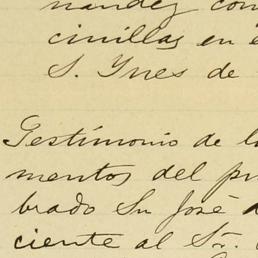 nandez con
cinillas en e
S. Ynes de
Testimonio de l
mentos del pr
brado Sn José d
ciente al Sr.